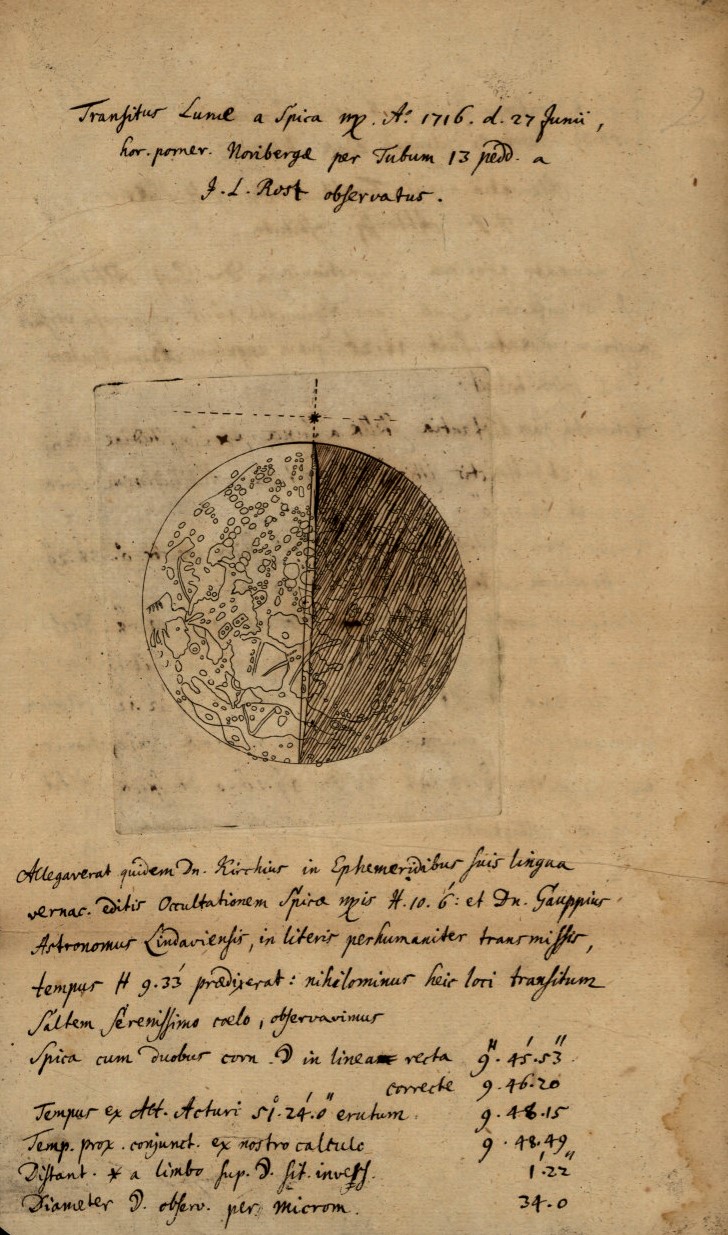 Transitus Lunæ a Spica ♍. A.° 1716. d. 27 Junii,
hor. pomer. Noribergæ per Tubum 13 pedd. a
J. L. Rost observatus.
Allegaverat quidem Dn. Kirchius in Ephemeridibus suis lingua
vernac. editis Occultationem Spicæ ♍is H. 10. 6′: et Dn. Gauppius
Astronomus Lindaviensis, in literis perhumaniter transmissis,
tempus H 9. 33′ prædixerat: nihilominus heic loci transitum
saltem serenissimo coelo, observavimus
Spica cum duobus corn. ☽ in linea recta 9.H 45.′ 53″
correcte 9. 46. 20
Tempus ex Alt. Arcturi 51.° 24.′ 0″ erutum. 9. 48. 15
Temp. prox. conjunct. ex nostro calculo 9. 48. 49
Distant. * a limbo sup. ☽. sit. invers. 1.′ 22″
Diameter ☽. observ. per Microm. 34. 0